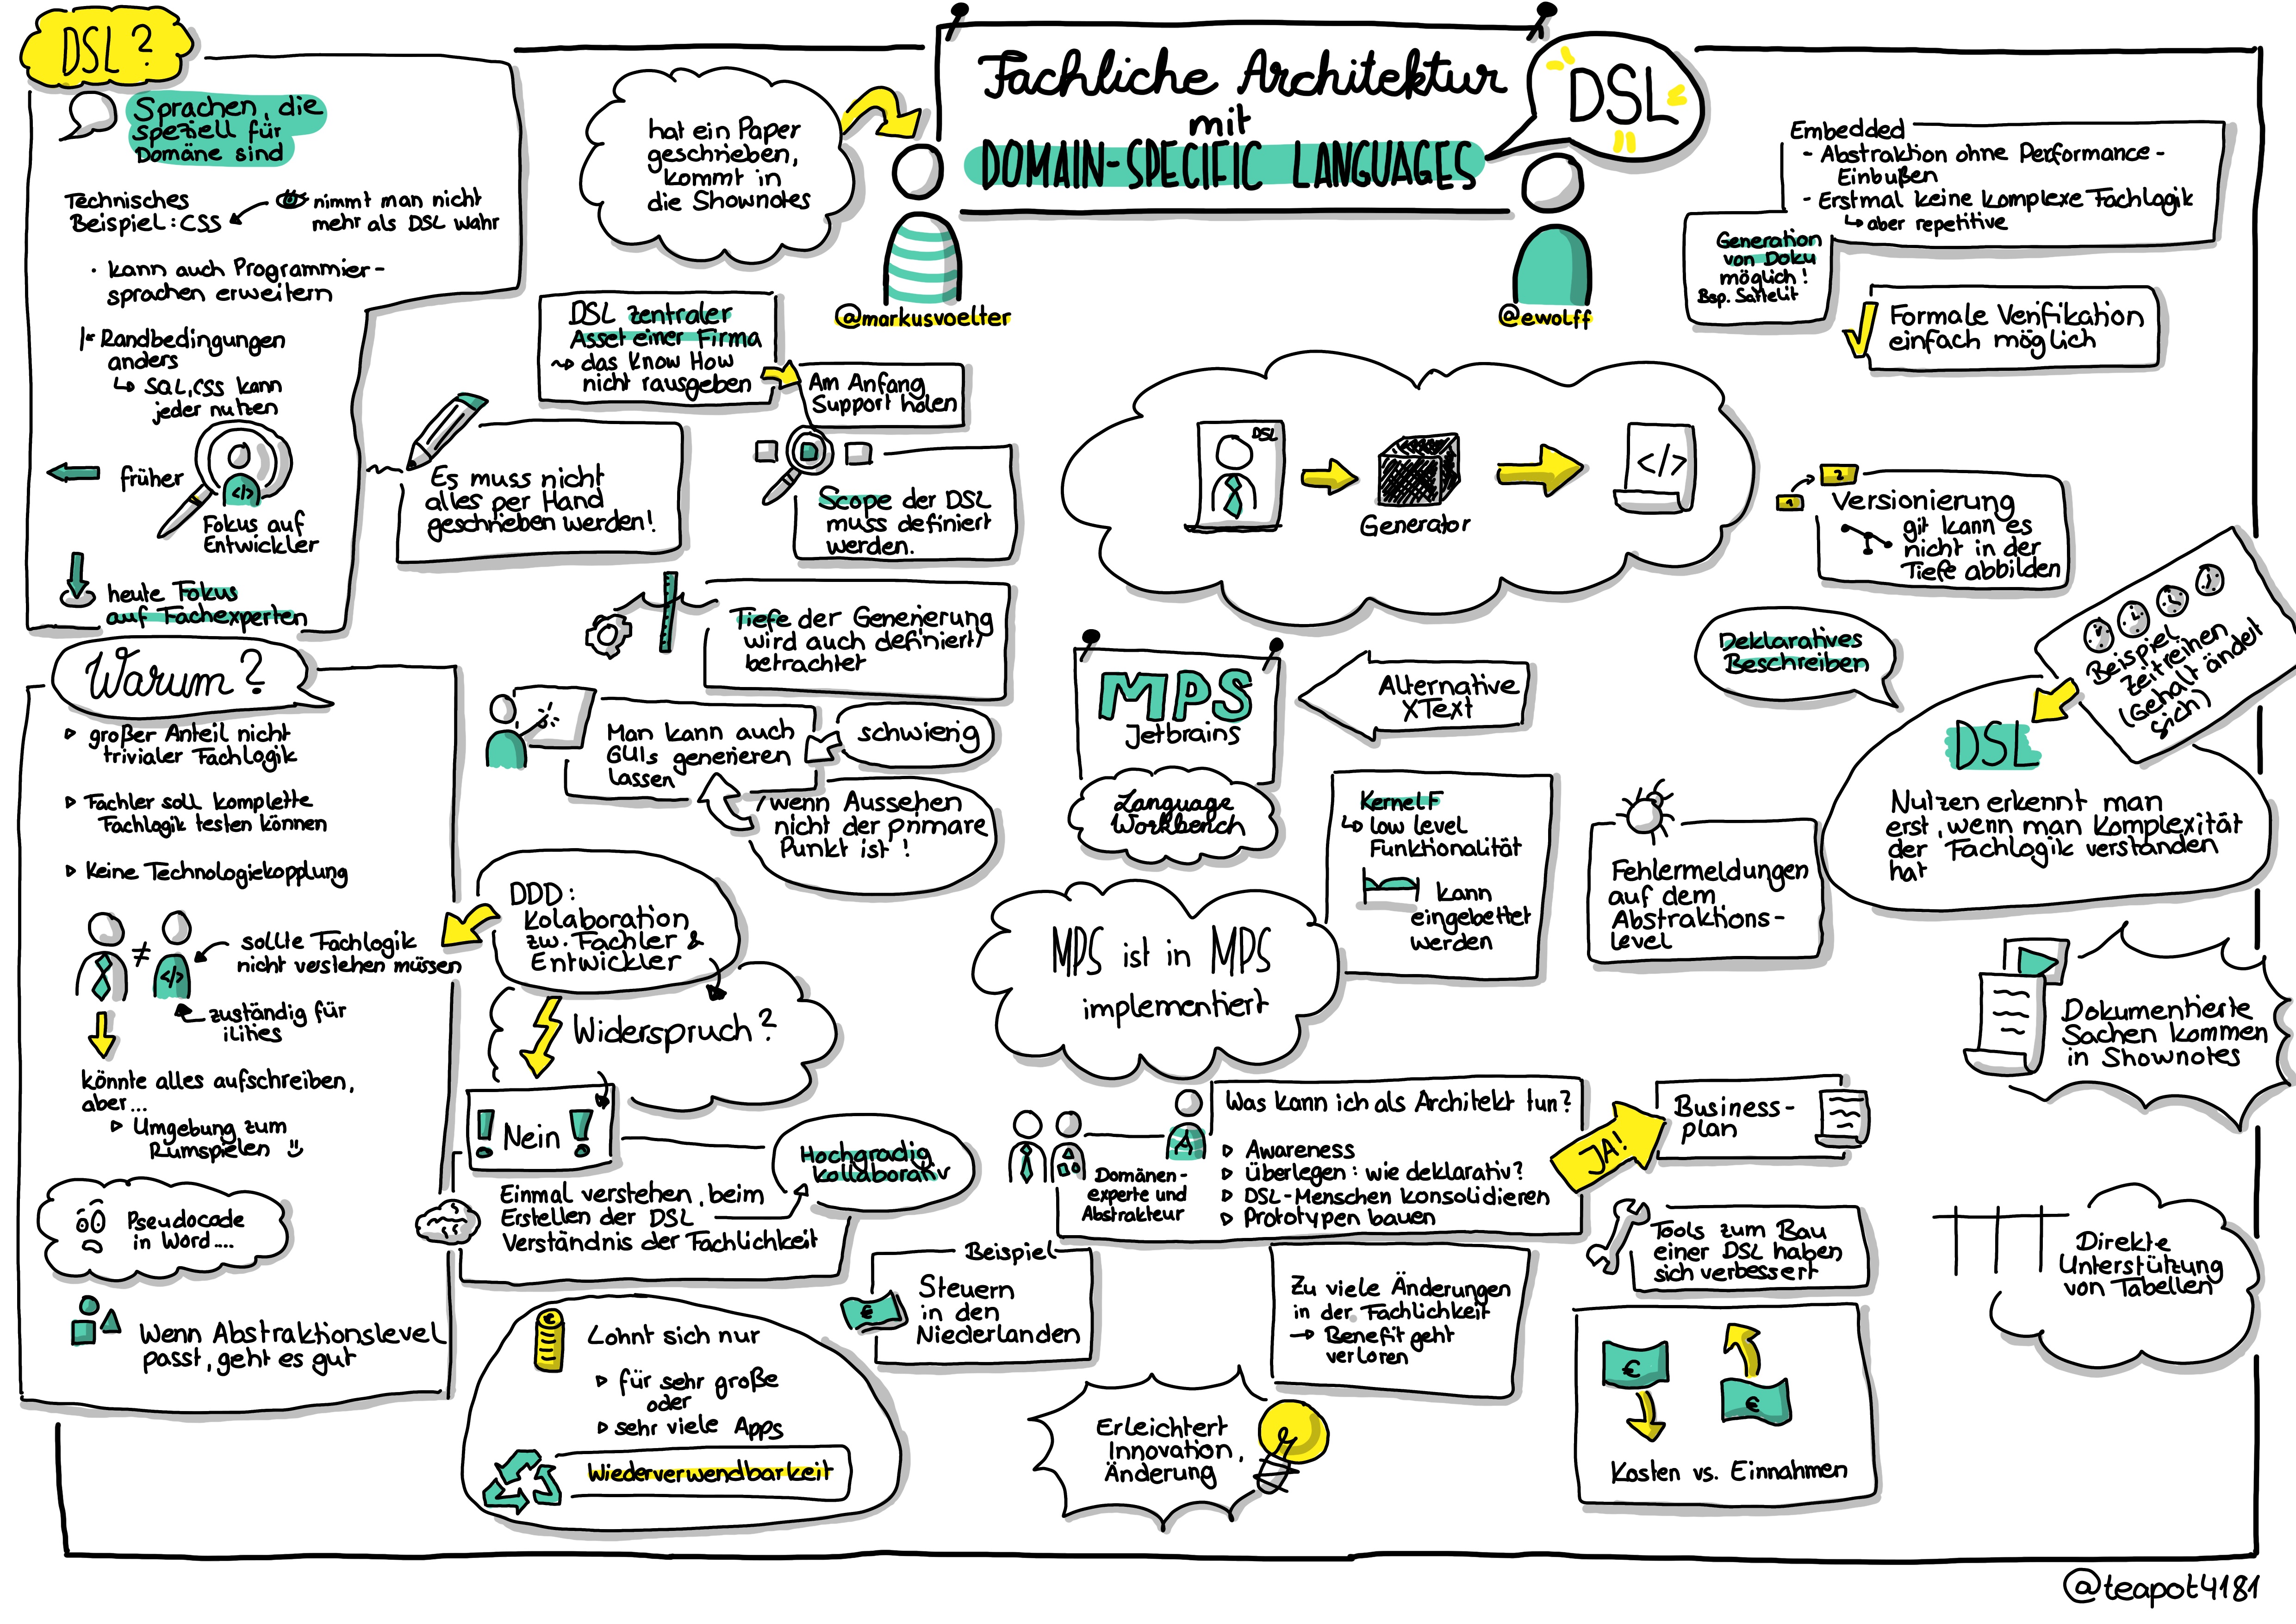 DSL?
Sprachen, die
speziell für
Domäne sind
Technisches
Beispiel: CSS
nimmt man nicht
mehr als DSL wahr
· kann auch Programmier-
sprachen erweitern
Randbedingungen
anders
↳ SQL, CSS kann
jeder nutzen
früher
</>
Fokus auf
Entwickler
heute Fokus
auf Fachexperten
hat ein Paper
geschrieben,
kommt in
die Shownotes
Fachliche Architektur
mit
DOMAIN-SPECIFIC LANGUAGES
DSL
@markusvoelter
@ewolff
Embedded
- Abstraktion ohne Performance-
Einbußen
- Erstmal keine komplexe Fachlogik
↳ aber repetitive
Generation
von Doku
möglich!
Bsp. Sattelit
Formale Verifikation
einfach möglich
DSL zentraler
Asset einer Firma
↝ das Know How
nicht rausgeben
Am Anfang
Support holen
Es muss nicht
alles per Hand
geschrieben werden!
Scope der DSL
muss definiert
werden.
DSL
Generator
</>
1
2
Versionierung
git kann es
nicht in der
Tiefe abbilden
Tiefe der Generierung
wird auch definiert/
betrachtet
Man kann auch
GUIs generieren
lassen
schwierig
wenn Aussehen
nicht der primäre
Punkt ist!
MPS
Jetbrains
Language
Workbench
Alternative
XText
Deklaratives
Beschreiben
Beispiel
Zeitreihen
(Gehalt ändert
sich)
DSL
Nutzen erkennt man
erst, wenn man Komplexität
der Fachlogik verstanden
hat
KernelF
↳ low level
Funktionalität
kann
eingebettet
werden
Fehlermeldungen
auf dem
Abstraktions-
level
MPS ist in MPS
implementiert
Dokumentierte
Sachen kommen
in Shownotes
Warum?
▹ großer Anteil nicht
trivialer Fachlogik
▹ Fachler soll komplette
Fachlogik testen können
▹ Keine Technologiekopplung
≠
</>
sollte Fachlogik
nicht verstehen müssen
zuständig für
ilities
könnte alles aufschreiben,
aber...
▹ Umgebung zum
Rumspielen
Pseudocode
in Word....
Wenn Abstraktionslevel
passt, geht es gut
DDD:
Kolaboration
zw. Fachler &
Entwickler
Widerspruch?
! Nein !
Einmal verstehen, beim
Erstellen der DSL
Verständnis der Fachlichkeit
Hochgradig
kollaborativ
€
Lohnt sich nur
▹ für sehr große
oder
▹ sehr viele Apps
Wiederverwendbarkeit
Beispiel
€
Steuern
in den
Niederlanden
Domänen-
experte und
Abstrakteur
A
Was kann ich als Architekt tun?
▹ Awareness
▹ überlegen: wie deklarativ?
▹ DSL-Menschen konsolidieren
▹ Prototypen bauen
JA!
Business-
plan
Zu viele Änderungen
in der Fachlichkeit
→ Benefit geht
verloren
Erleichtert
Innovation,
Änderung
Tools zum Bau
einer DSL haben
sich verbessert
Direkte
Unterstützung
von Tabellen
€
€
Kosten vs. Einnahmen
@teapot4181